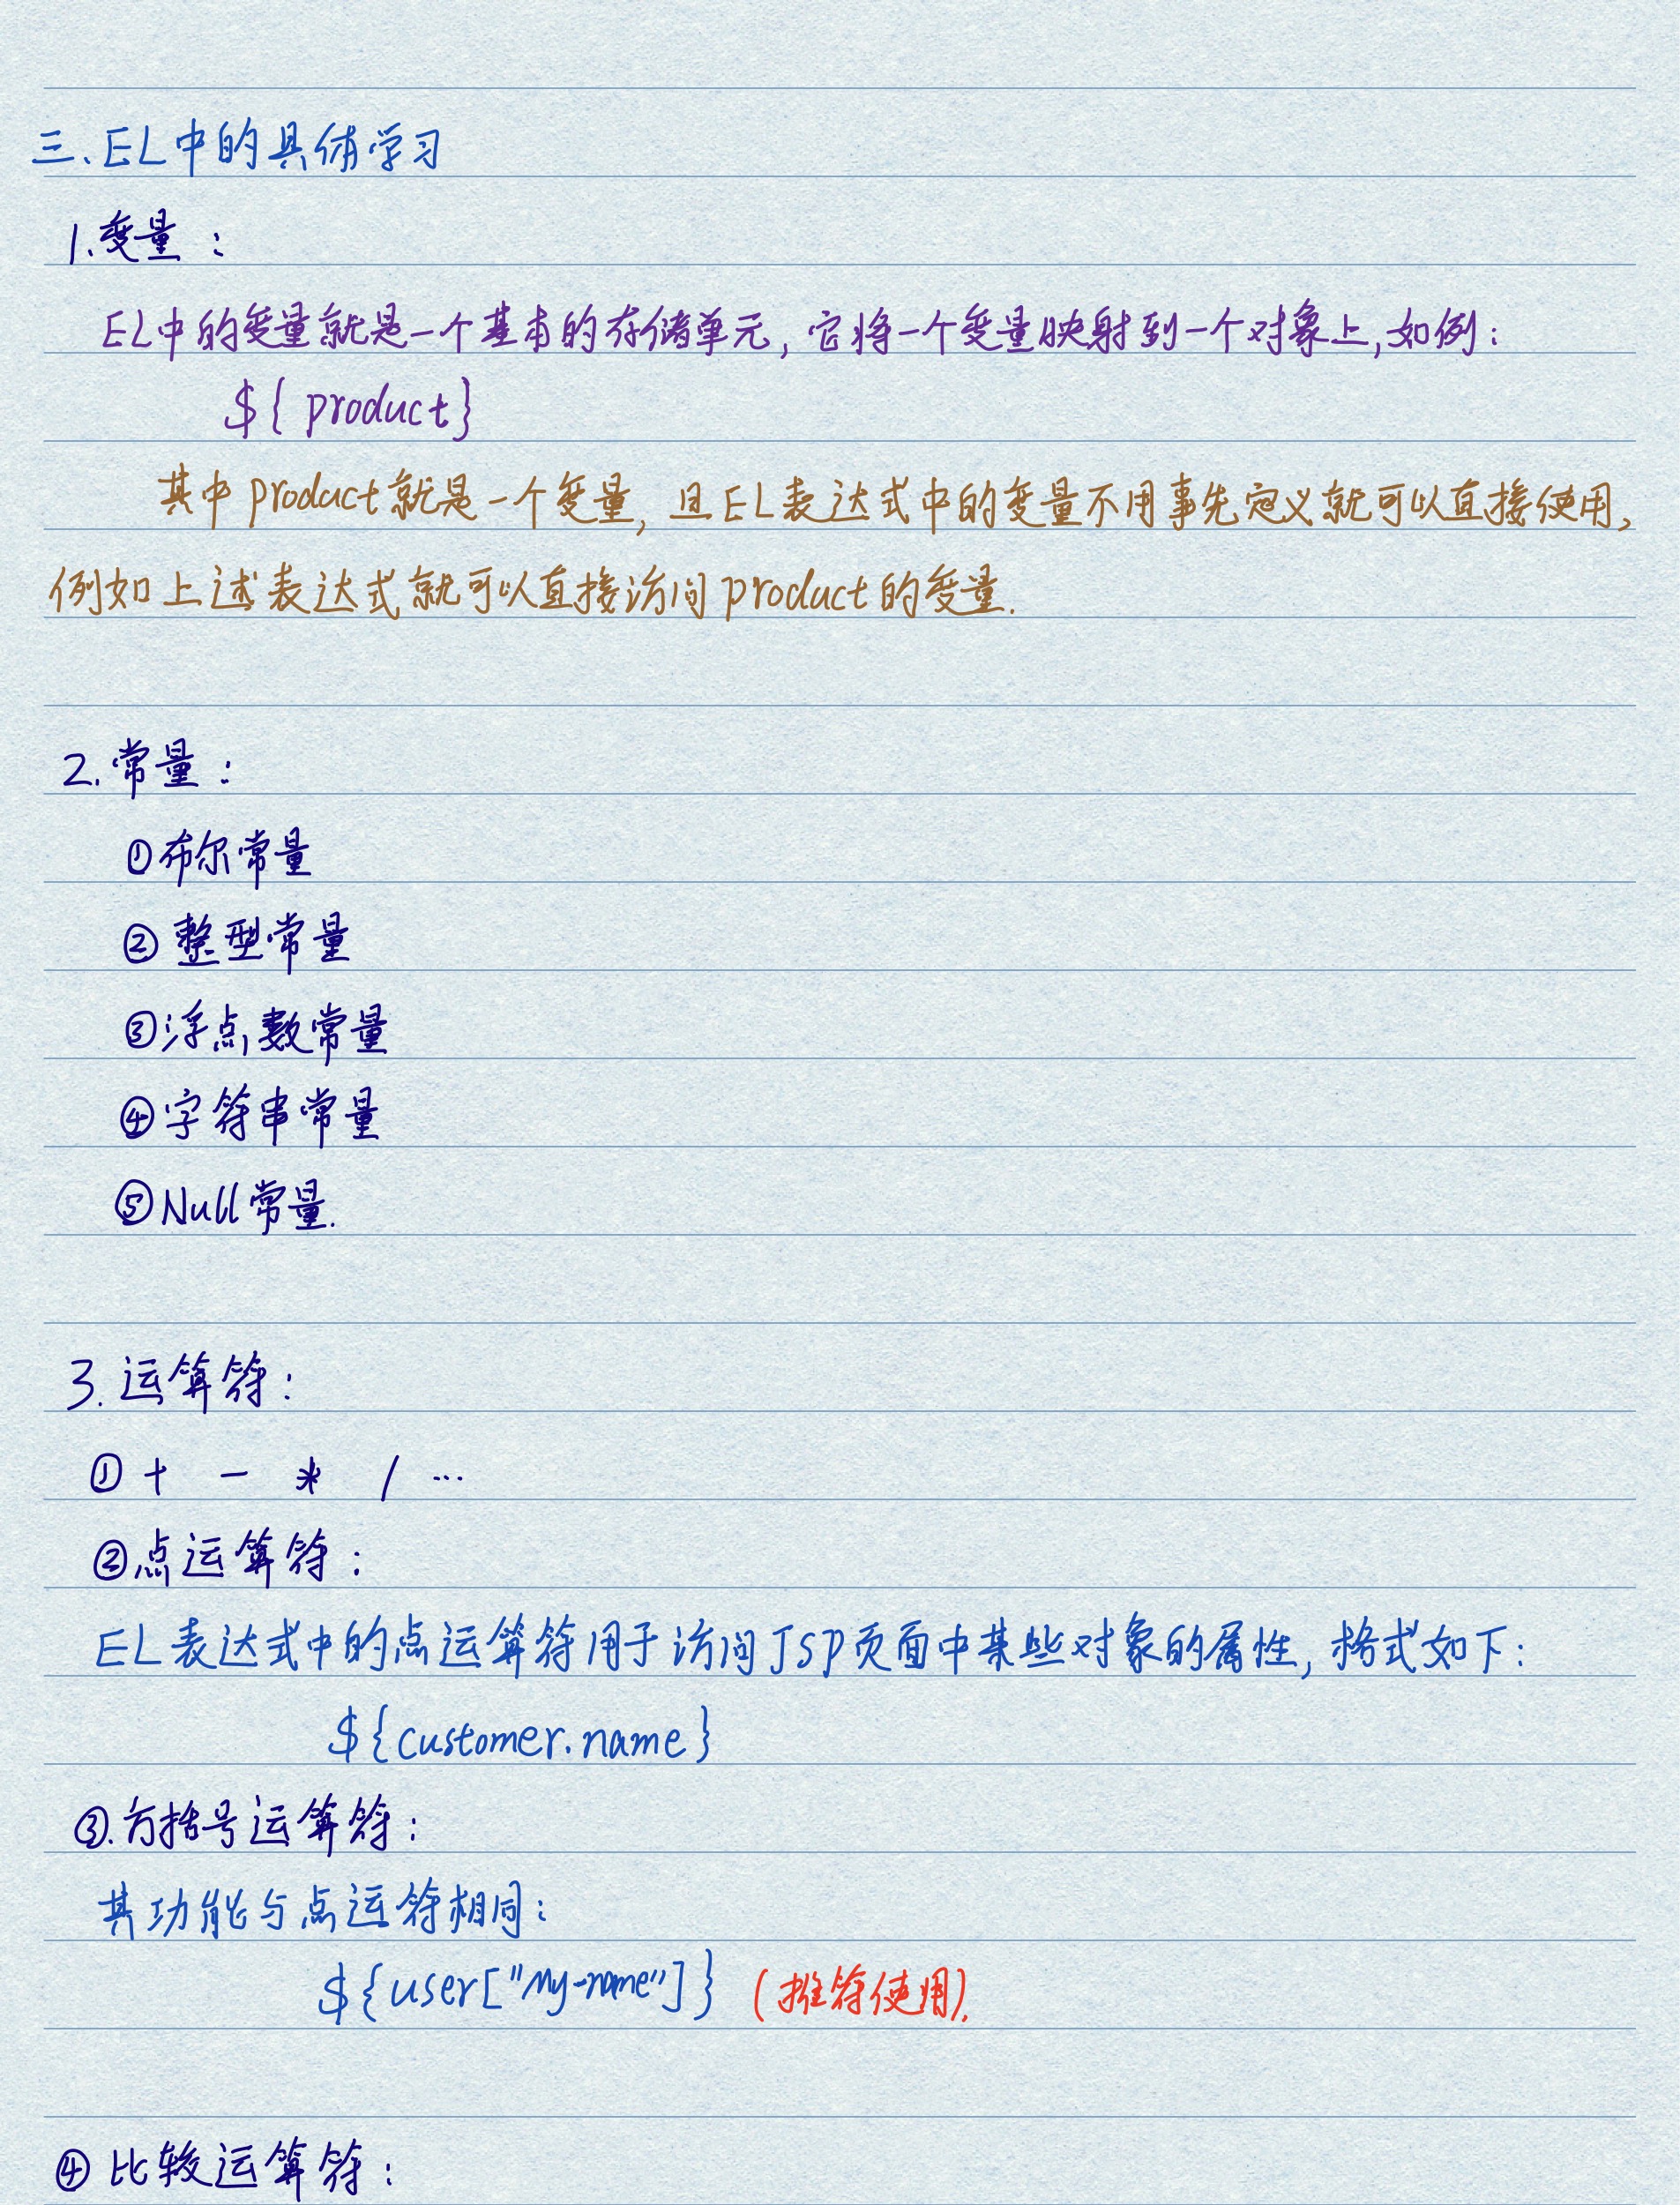 三、EL中的具体学习
1.变量：
EL中的变量就是一个基本的存储单元,它将一个变量映射到一个对象上,如例：
${ product}
其中product就是一个变量,且EL表达式中的变量不用事先定义就可以直接使用,
例如上述表达式就可以直接访问product的变量.
2.常量：
①布尔常量
②整型常量
③浮点数常量
④字符串常量
⑤Null常量.
3.运算符：
①+ - * / …
②点运算符：
EL表达式中的点运算符用于访问JSP页面中某些对象的属性,格式如下：
${customer.name}
③.方括号运算符：
其功能与点运符相同：
${user["My-name"]} (推符使用).
④比较运算符：